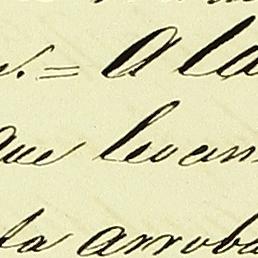 = A la
que levan
ta arroba